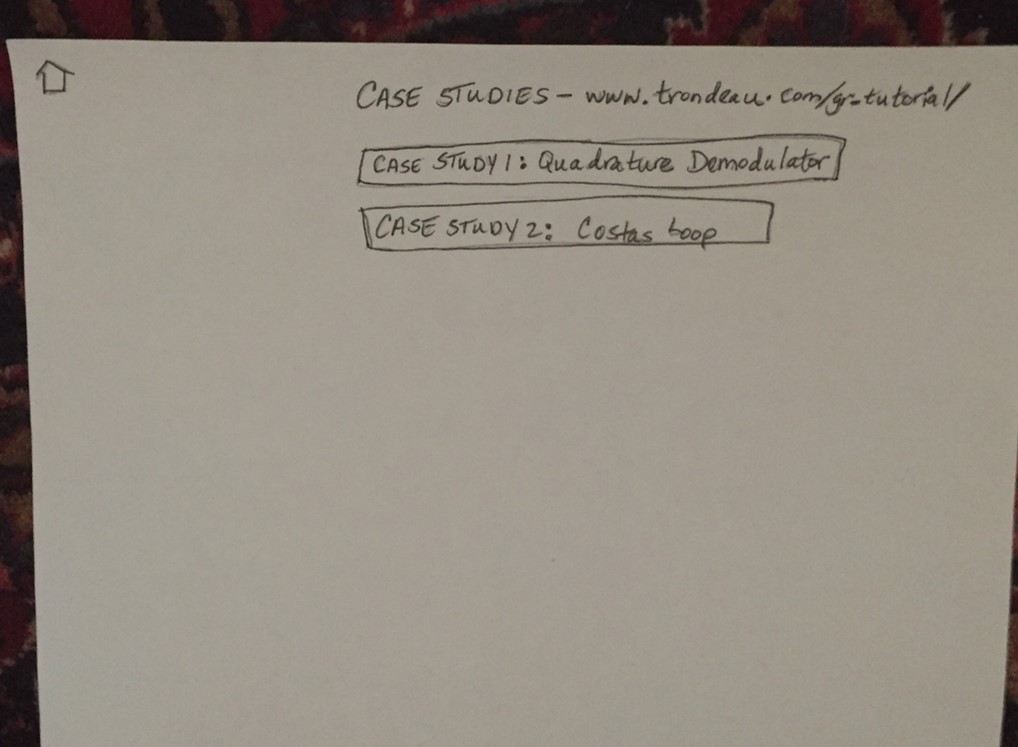 CASE STUDIES - www.trondeau.com/gr-tutorial/
CASE STUDY 1: Quadrature Demodulator
CASE STUDY 2: Costas Loop